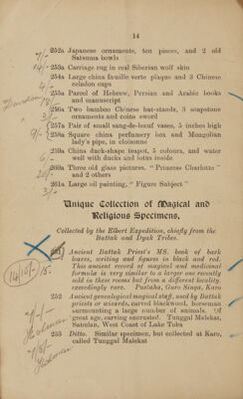 14
7/- 252A Japanese ornaments, ten pieces, and 2 old
Satsuma bowls
14/- 253A Carriage rug in real Siberian wolf skin
254A Large china famille verte plaque and 3 Chinese
celadon cups
255A Parcel of Hebrew, Persian and Arabic books
and manuscript
256A Two bamboo Chinese hat-stands, 3 soapstone
ornaments and coins sword
257A Pair of small sang-de-boeuf vases, 5 inches high
9/- 258A Square china perfumery box and Mongolian
lady's pipe, in cloisonne
259A China duck-shape teapot, 5 colours, and water
well with ducks and lotus inside
260A Three old glass pictures, "Princess Charlotte"
and 2 others
261A Large oil painting, "Figure Subject"
3/-
Unique Collection of Magical and
Religious Specimens,
Collected by the Elbert Expedition, chiefly from the
Battak and Dyak Tribes.
251 Ancient Battak Priest's MS. book of bark
leaves, writing and figures in black and red.
This ancient record of magical and medicinal
formula is very similar to a larger one recently
sold in these rooms but from a different locality.
exceedingly rare. Pustaha, Guro Singa, Karo
252 Ancient genealogical magical staff, used by Battak
priests or wizards, carved blackwood, horseman
surmounting a large number of animals. Of
great age, carving sacrated. Tunggal Malekat,
Satnulan, West Coast of Lake Toba
253 Ditto. Similar specimen, but collected at Karo,
called Tunggal Malekat